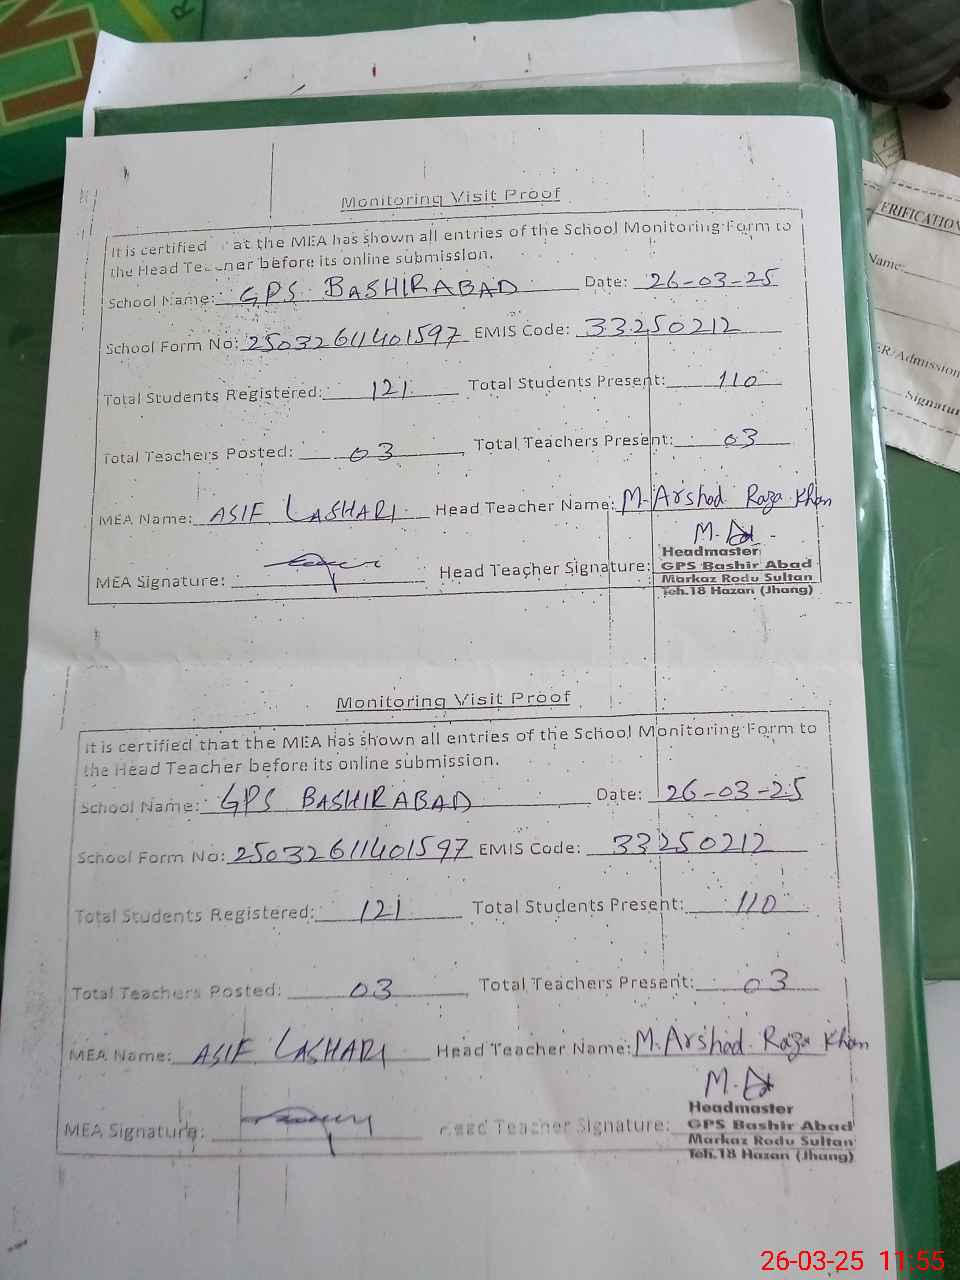 Monitoring Visit Proof
It is certified at the MEA has shown all entries of the School Monitoring Form to
the Head Teacher before its online submission.
School Name: GPS BASHIRABAD Date: 26-03-25
School Form No: 25032611401597 EMIS Code: 33250212
Total Students Registered: 121 Total Students Present: 110
Total Teachers Posted: 03 Total Teachers Present: 03
MEA Name: ASIF LASHARI Head Teacher Name: M. Arshad Raza Khan
MEA Signature: Head Teacher Signature:
Headmaster
GPS Bashir Abad
Markaz Rodu Sultan
Teh.18 Hazari (Jhang)
Monitoring Visit Proof
It is certified that the MEA has shown all entries of the School Monitoring Form to
the Head Teacher before its online submission.
School Name: GPS BASHIRABAD Date: 26-03-25
School Form No: 25032611401597 EMIS Code: 33250212
Total Students Registered: 121 Total Students Present: 110
Total Teachers Posted: 03 Total Teachers Present: 03
MEA Name: ASIF LASHARI Head Teacher Name: M. Arshad Raza Khan
MEA Signature: Head Teacher Signature:
Headmaster
GPS Bashir Abad
Markaz Rodu Sultan
Teh.18 Hazari (Jhang)
ERIFICATION
Name:
ER/Admission
Signatur
26-03-25 11:55